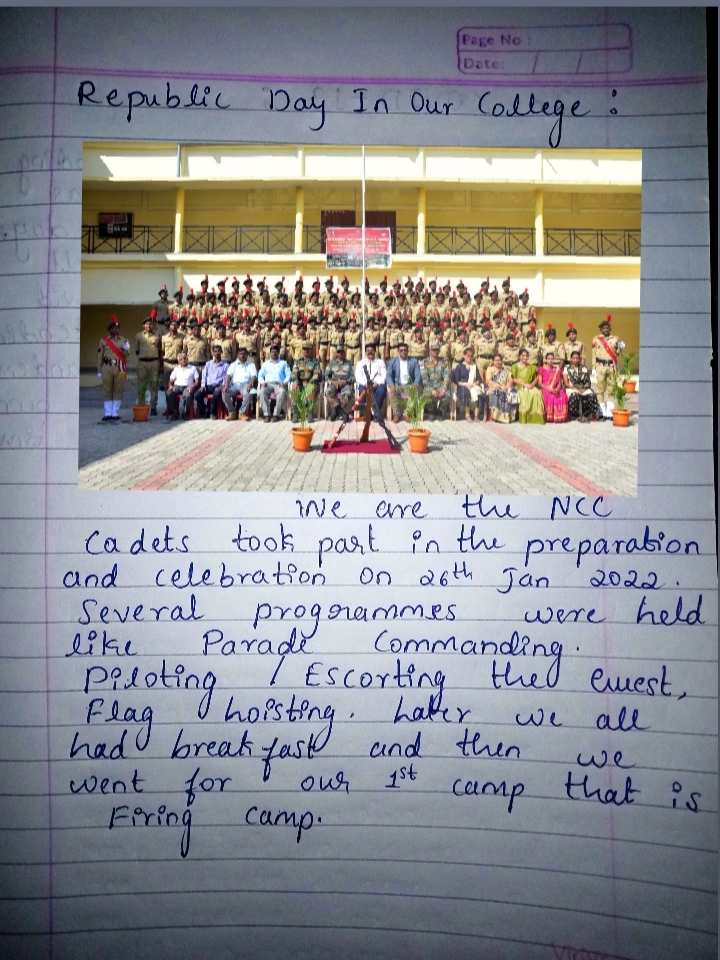 Page No :
Date: / /
Republic Day In Our College :
We are the NCC
Cadets took part in the preparation
and celebration on 26th Jan 2022.
Several programmes were held
like Parade Commanding.
Piloting / Escorting the Guest,
Flag hoisting. Later we all
had breakfast and then we
went for our 1st camp that is
Firing camp.